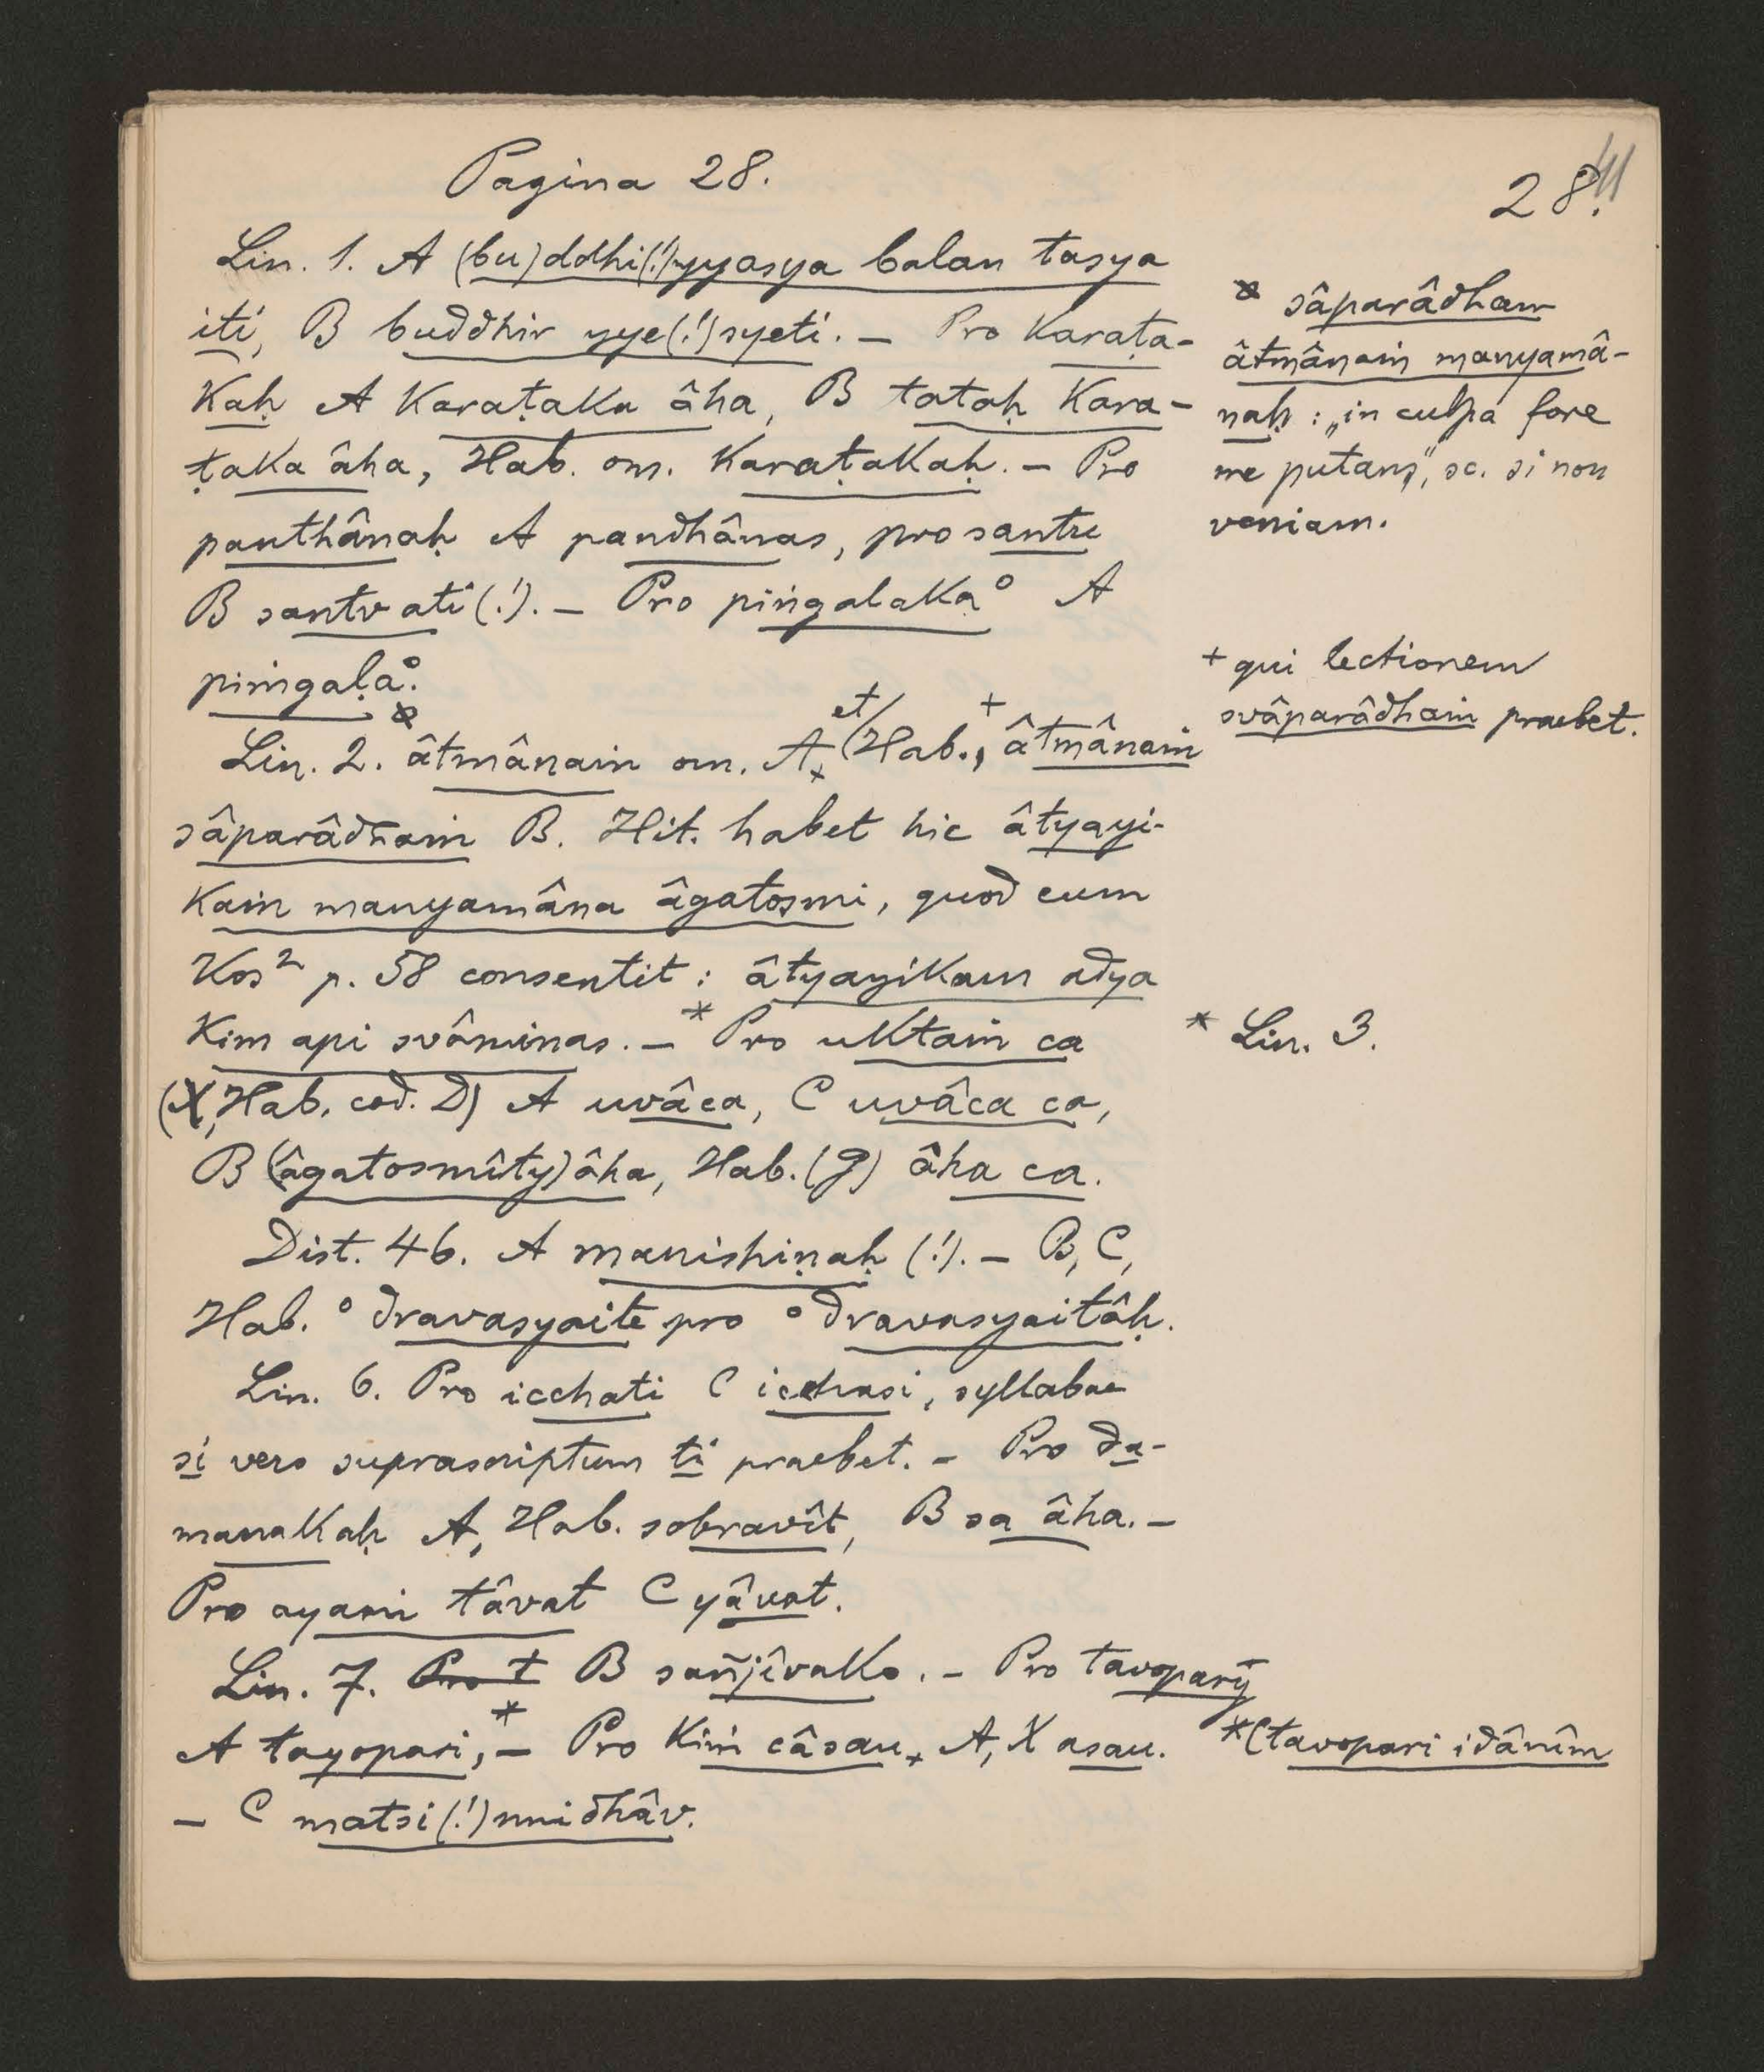 Pagina 28.
28.
Lin. 1. A (bu)ddhi(!)yyasya balan tasya
iti, B buddhir yye(!)syeti. – Pro karaṭa-
kaḥ A karaṭaka âha, B tataḥ kara-
ṭaka âha, Hab. om. karaṭakaḥ. – Pro
panthânaḥ A pandhânas, pro santu
B santv ati(!). – Pro piṅgalaka° A
piṁgaḷa°.
Lin. 2. âtmânaṁ om. A, et Hab.,+ âtmânaṁ
sâparâdhaṁ B. Hit. habet hic âtyayi-
kaṁ manyamâna âgatosmi, quod cum
Kos² p. 58 consentit: âtyayikam adya
kim api svâminas. – * Pro uktaṁ ca
(X, Hab. cod. D) A uvâca, C uvâca ca,
B (âgatosmîty) âha, Hab. (g) âha ca.
Dist. 46. A manishiṇaḥ (!). – B, C,
Hab. °dravasyaite pro °dravasyaitâḥ.
Lin. 6. Pro icchati C icchasi, syllabae
si vero suprascriptum ti praebet. – Pro da-
manakaḥ A, Hab. sobravît, B sa âha. –
Pro ayaṁ tâvat C yâvat.
Lin. 7. Pro t B sañjîvako. – Pro tavopary
A tayopari,* – Pro kiṁ câsau A, X asau.
– C matsi(!)nnidhâv.
sâparâdham
âtmânaṁ manyamâ-
naḥ: „in culpa fore
me putans", sc. si non
veniam.
+ qui lectionem
svâparâdhaṁ praebet.
* Lin. 3.
* C tavopari idânîm